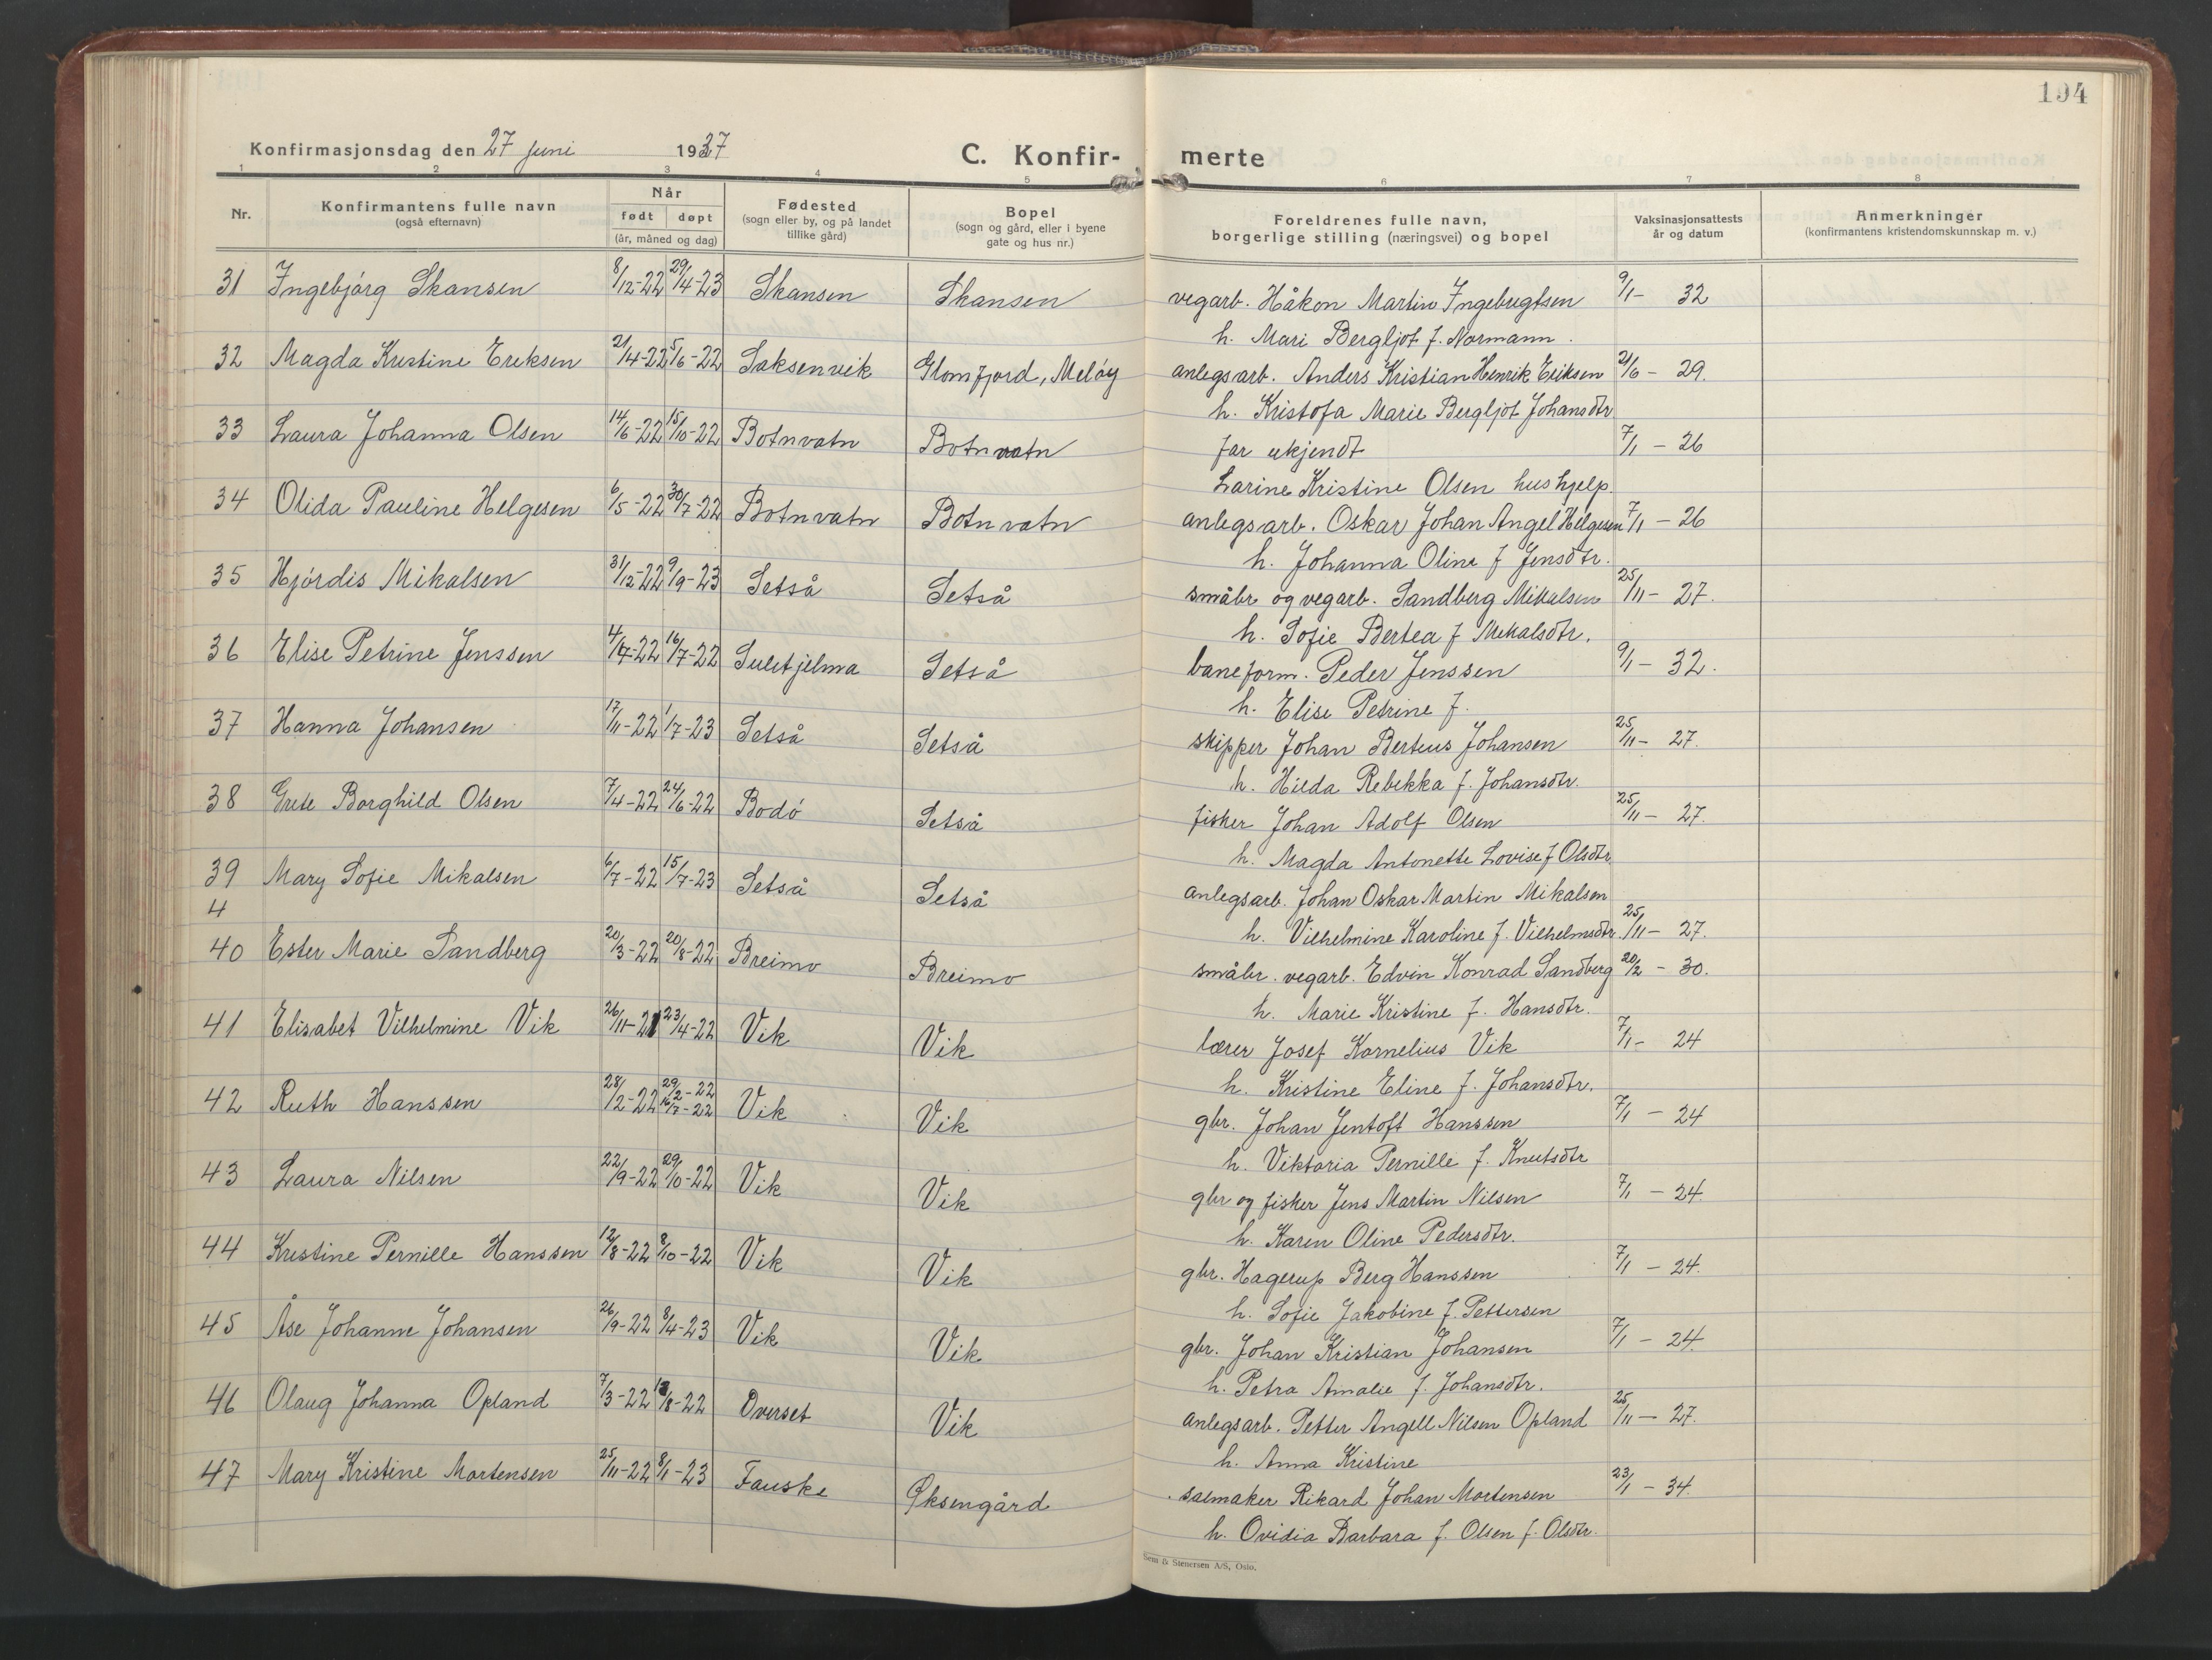 194
Konfirmasjonsdag den 27 juni 1937
C. Konfir- merte
1 2 3 4 5 6 7 8
Nr.
Konfirmantens fulle navn
(også efternavn)
Når
født døpt
(år, måned og dag)
Fødested
(sogn eller by, og på landet
tillike gård)
Bopel
(sogn og gård, eller i byene
gate og hus nr.)
Foreldrenes fulle navn,
borgerlige stilling (næringsvei) og bopel
Vaksinasjonsattests
år og datum
Anmerkninger
(konfirmantens kristendomskunnskap m. v.)
31 Ingebjörg Skansen 8/12-22 29/4-23 Skansen Skansen vegarb. Håkon Martin Ingebrigtsen 9/1 - 32
h. Mari Bergljot f. Normann.
32 Magda Kristine Eriksen 21/4-22 5/6-22 Saksenvik Glomfjord, Melöy anlegsarb. Anders Kristian Henrik Eriksen 21/6 - 29.
h. Kristofa Marie Bergljot Johansdtr
33 Laura Johanna Olsen 14/6-22 15/10-22 Botnvatn Botnvatn far ukjendt 7/1 - 26
Larine Kristine Olsen hushjelp.
34 Olida Pauline Helgesen 6/5-22 30/7-22 Botnvatn Botnvatn anlegsarb. Oskar Johan Angel Helgesen 7/1 - 26
h. Johanna Oline f Jensdtr.
35 Hjördis Mikalsen 31/12-22 9/9-23 Setså Setså småbr og vegarb. Sandberg Mikalsen 25/11 - 27.
h. Sofie Bertea f Mikalsdtr.
36 Elise Petrine Jenssen 4/4-22 16/7-22 Sulitjelma Setså baneform. Peder Jenssen 9/1 - 32.
h. Elise Petrine f.
37 Hanna Johansen 17/11-22 1/7-23 Setså Setså skipper Johan Berteus Johansen 25/11 - 27.
h. Hilda Rebekka f. Johansdtr.
38 Grete Borghild Olsen 7/4-22 24/6-22 Bodö Setså fisker Johan Adolf Olsen 25/11 - 27.
h. Magda Antonette Lovise f Olsdtr
39 Mary Sofie Mikalsen 6/7-22 15/7-23 Setså Setså anlegsarb. Johan Oskar Martin Mikalsen
4
h. Vilhelmine Karoline f. Vilhelmsdtr. 25/11 - 27.
40 Ester Marie Sandberg 20/3-22 20/8-22 Breimo Breimo småbr. vegarb. Edvin Konrad Sandberg 20/2 - 30.
h. Marie Kristine f. Hansdtr.
41 Elisabet Vilhelmine Vik 26/11-21 23/4-22 Vik Vik lærer Josef Kornelius Vik 7/1 - 24
h. Kristine Eline f. Johansdtr.
42 Ruth Hanssen 28/2-22 29/2-22 16/7-22 Vik Vik gbr. Johan Jentoft Hanssen 7/1 - 24
h. Viktoria Pernille f. Knutsdtr
43 Laura Nilsen 22/9-22 29/10-22 Vik Vik gbr og fisker Jens Martin Nilsen 7/1 - 24.
h. Karen Oline Pedersdtr.
44 Kristine Pernille Hanssen 12/8-22 8/10-22 Vik Vik gbr. Hagerup Berg Hanssen 7/1 - 24.
h. Sofie Jakobine f. Pettersen
45 Åse Johanne Johansen 26/9-22 8/4-23 Vik Vik gbr. Johan Kristian Johansen 7/1 - 24.
h. Petra Amalie f. Johansdtr.
46 Olaug Johanna Opland 7/3-22 /8-22 Överset Vik anlegsarb. Petter Angell Nilsen Opland 25/11 - 27.
h. Anna Kristine
47 Mary Kristine Mortensen 25/11-22 8/1-23 Fauske Øksengård salmaker Rikard Johan Mortensen 23/1 - 34.
h. Ovidia Barbara f. Olsen f. Olsdtr.
Sem & Stenersen A/S, Oslo.